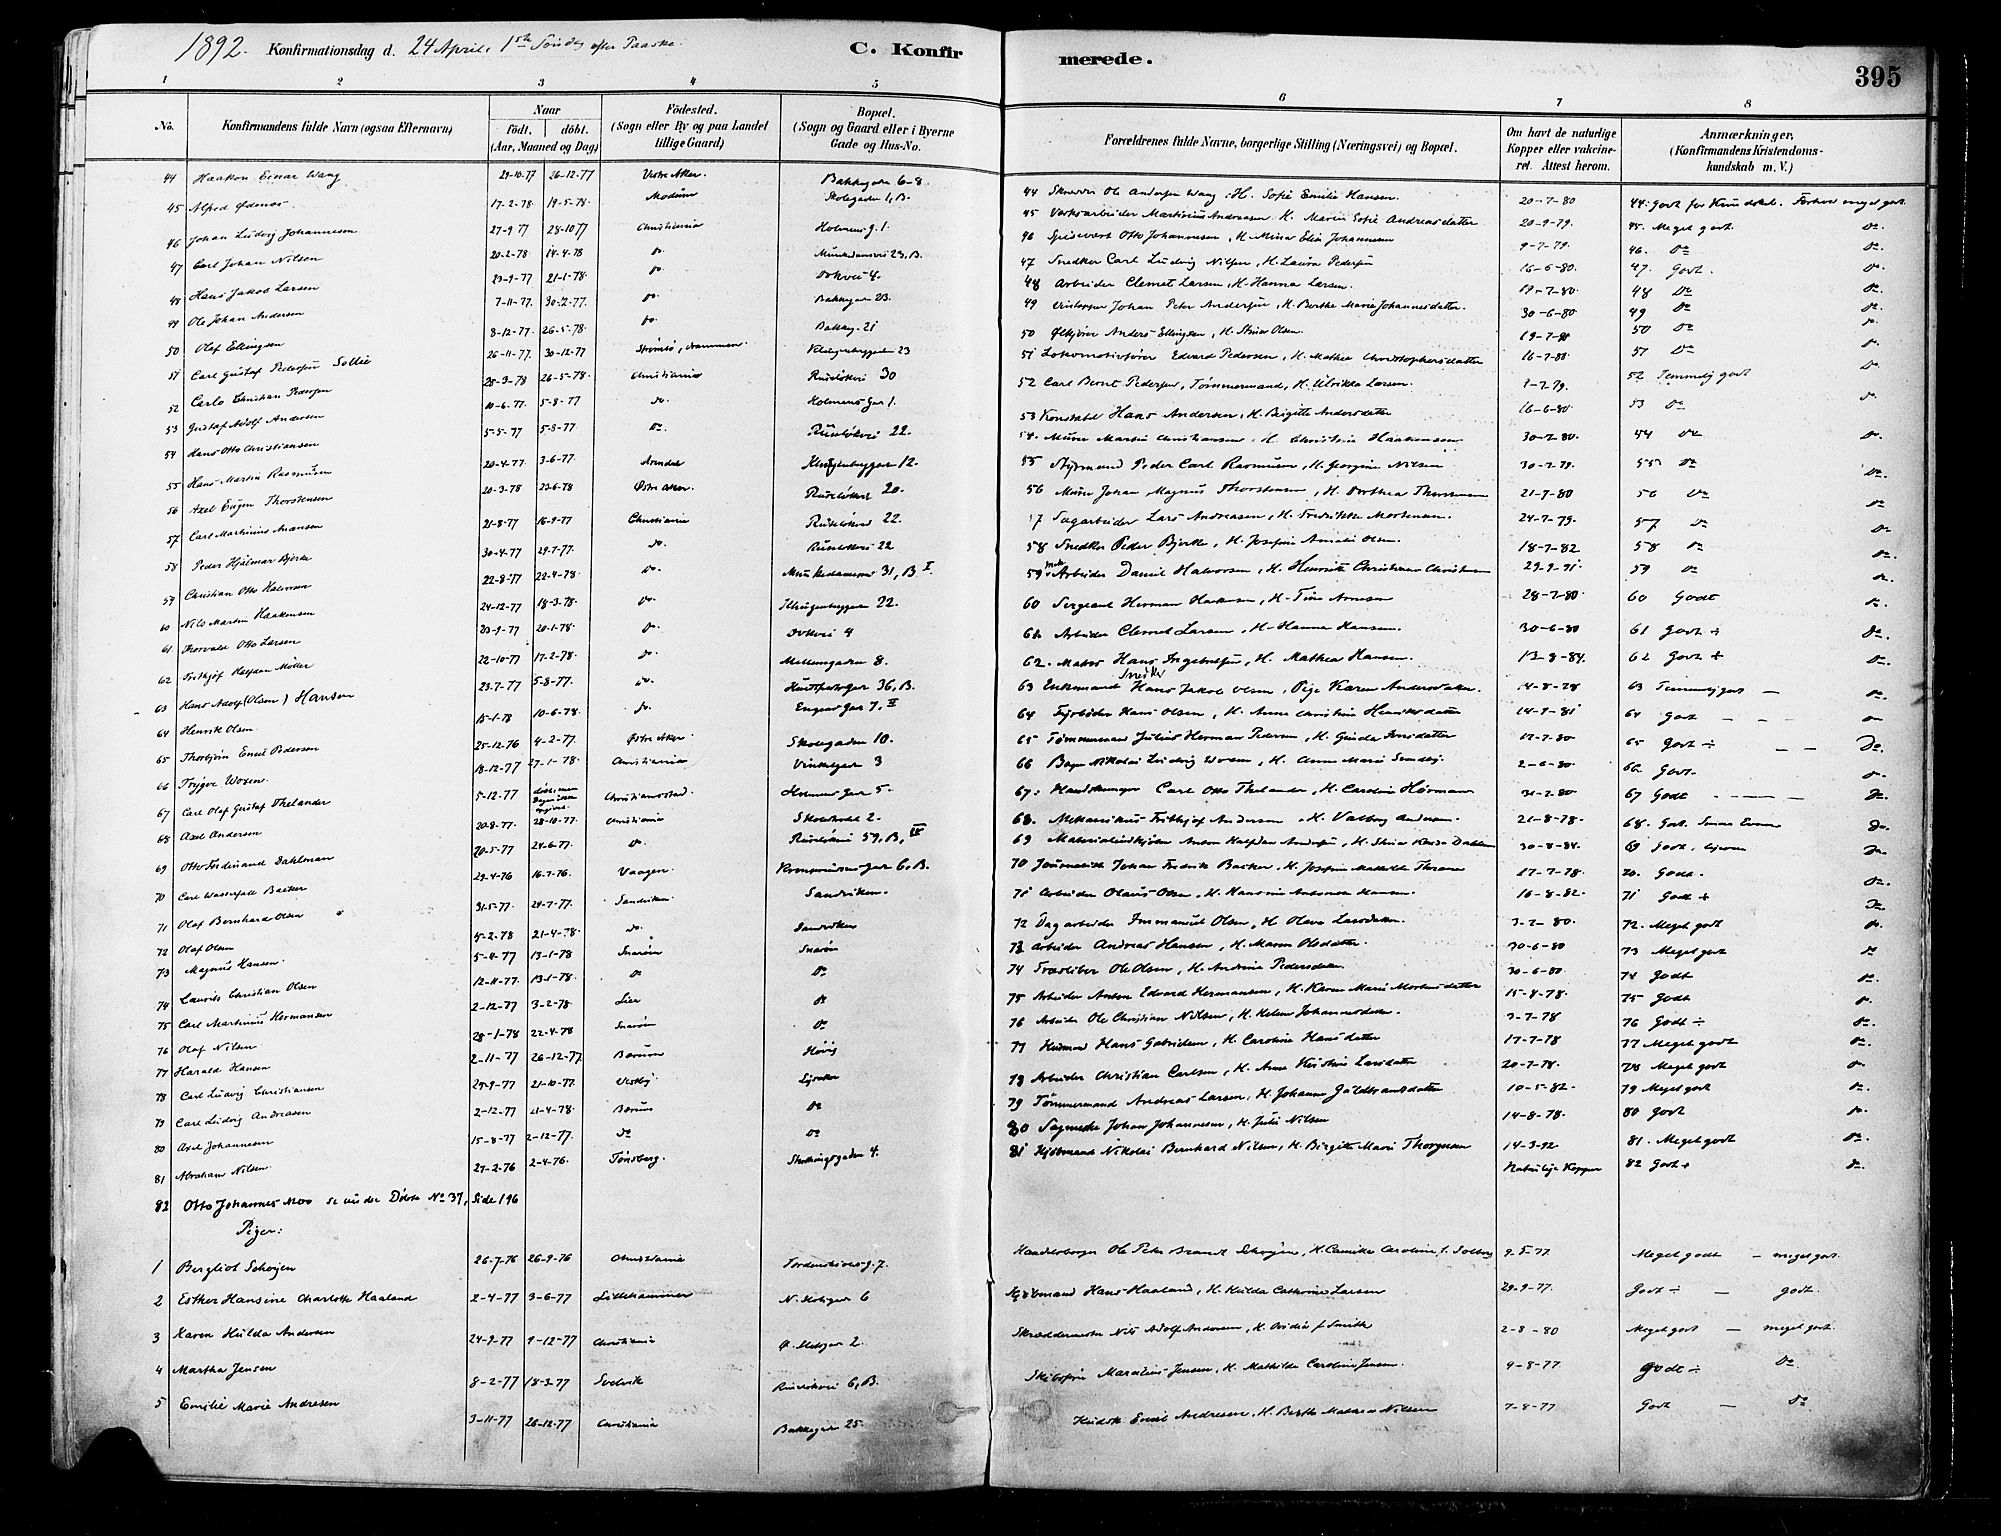 1892. Konfirmationsdag d. 24 April, 1ste Søndag efter Paaske.
C. Konfirmerede.
395
1 2 3 4 5 6 7 8
No.
Konfirmandens fulde Navn (ogsaa Efternavn)
Naar født. døbt. (Aar, Maaned og Dag)
Födested. (Sogn eller By og paa Landet tillige Gaard)
Bopæl. (Sogn og Gaard eller i Byerne Gade og Hus-No.
Forældrenes fulde Navne, borgerlige Stilling (Næringsvei) og Bopæl.
Om havt de naturlige Kopper eller vakcineret. Attest herom.
Anmærkninger. (Konfirmandens Kristendomskundskab m. V.)
44 Haakon Einar Wang 29-10-77 26-12-77 Vestre Aker. Bakkegaden 6-8 44 Skrædder Ole Andersen Wang, H. Sofie Emilie Hansen. 20-7-80
45 Alfred Ødenes 17-2-78 19-5-78 Modum Skolegaden 1, B. 45 Værksarbeider Martinius Andreasen H. Maren Sofie Andreasdatter 20-9-79. 45. Meget godt do
46 Johan Ludvig Johannesen 27-9-77 28-10-77 Christiania Holmens g. 1. 46 Spisevært Otto Johannesen, H. Mina Elise Johannesen 9-7-79. 46. do do
47 Carl Johan Nilsen 20-2-78 14-4-78 do Munkedamsvei 23, B. 47 Snedker Carl Ludvig Nilsen, H. Laura Pedersen 16-6-80. 47. Godt. do
48 Hans Jakob Larsen 23-9-77 21-1-78 do Dokvei 4. 48 Arbeider Clemet Larsen, H. Hanna Larsen. 19-7-80. 48 do do
49 Ole Johan Andersen 7-11-77 30-12-77. do Bakkegd. 23. 49 Johan Peter Andersen, H. Berthe Marie Johannesdatter. 30-6-80 49 do do
50 Olaf Ellingsen 8-12-77 26-5-78. do Bakkeg. 21 50 Ølkjører Anders Ellingsen, H. Olsen. 19-7-80 50 do do
51 Carl Gustaf Pedersen Sollie 26-11-77. 30-12-77 Strømsø, Drammen. Klingenberggaden 23 51 Lokomotivfører Edvard Pedersen, H. Mathea Christophersdatter 16-7-80 51 do do
52 Carlo Christian Pedersen 28-3-78 26-5-78. Christiania Ruseløkvei 30 52 Carl Bernt Pedersen, Tømmermand, H. Ulrikke Larsen. 1-7-79. 52 Temmelig godt do
53 Gustaf Adolf Andersen 10-6-77. 5-8-77 do. Holmens gd. 1. 53 Konstabel Hans Andersen, H. Birgitte Andersdatter 16-6-80 53 do do
54 Hans Otto Christiansen 5-5-77 5-8-77 do. Ruseløkvei 22. 54. Murer Martin Christiansen, H. Christine Haakensen 30-7-80. 54 do do
55 Hans Martin Rasmussen 20-4-77. 3-6-77. Arendal Klingenberggd. 12. 55 Styrmand Peder Carl Rasmussen, H. Georgine Nilsen 30-7-79. 55 do do
56 Axel Eugen Thorstensen 20-3-78 23-6-78 Østre Aker. Ruseløkvei 20. 56 Murer Johan Magnus Thorstensen, H. Dorthea Thorstensen 21-7-80 56 do do
57 Carl Martinius Andersen 21-8-77 16-9-77 Christiania Ruseløkvei 22. 57 Sagarbeider Lars Andreasen, H. Fredrikke Mortensen. 24-7-79. 57 do do
58 Peder Hjalmar Bjerke 30-4-77 29-7-77. do. Ruseløkvei 22 58 Snedker Peder Bjerke, H. Josefine Amalie Olsen 18-7-82 58 do do
59 Christian Otto Halvorsen 22-8-77 22-4-78 do. Munkedamsvei 31, B I. 59 Arbeider Daniel Halvorsen, H. Henriette Christiane Christensen 29-9-91 59 do do
60 Nils Martin Haakensen 24-12-77 18-3-78. do. Klingenberggd. 22. 60 Sergeant Herman Haakensen, H. Tine Arnesen 28-7-80. 60 Godt do
61 Thorvald Otto Larsen 23-9-77 20-1-78. do. Dokvei 4 61 Arbeider Clemet Larsen, H. Hanna Hansen. 30-6-80 61 Godt ÷ do
62 Frithjof Halfdan Møller 22-10-77 17-2-78. do. Mellemgaden 8. 62. Matros Hans Ingebretsen, H. Mathea Hansen. 13-8-84. 62 Godt + do
63 Hans Adolf (Olsen) Hansen 23-7-77 5-8-77. do. Huitfeldtsgd. 36, B. 63 Enkemand Snedker Hans Jakob Olsen, Pige Karen Andersdatter. 14-8-78 63 Temmelig godt — do
64 Henrik Olsen 15-1-78 10-6-78. do. Enggaden 7, II 64 Fyrbøder Hans Olsen, H. Anne Christine Henriksdatter 14-9-81 64 Godt — do
65 Thorbjørn Emil Pedersen 25-12-76 4-2-77. Østre Aker. Skolegaden 10. 65 Tømmermand Julius Herman Pedersen, H. Gunda Jensdatter 17-7-80 65 Godt ÷ — do
66 Trygve Woxen. 18-12-77 27-1-78. Christiania Vinkelgd. 3 66 Bager Nikolai Ludvig Woxen, H. Anne Marie Sundby. 2-6-80. 66. Godt. do
67 Carl Olaf Gustaf Thelander 5-12-77 Christianssted. Holmens Gd. 5. 67. Carl Otto Thelander, H. Caroline Hörman 31-2-80 67 Godt — do
68 Axel Andersen 20-8-77. 28-10-77. Christiania 2. 68. Mekanikus Frithjof Andersen, H. Valborg Andersen. 21-8-78. 68. Godt. do
69 Otto Ferdinand Dahlman 20-5-77 24-6-77. do. Ruseløkvei 59, B, IV 69 30-8-84. 69 Godt. do
70 Carl Wasserfall Backer 29-4-76 16-7-76. Vaagen 6, B. 70 Journalist Johan Fredrik Backer, H. Josefine Mathilde 17-7-78. 70. Godt. do
71 Olaf Bernhard Olsen 31-5-77. 29-7-77. Sandviken. Sandviken. 71 Arbeider Olaus Olsen, H. Hansine Antonette Hansen. 16-8-82. 71 Godt + do
72 Olaf Olsen 15-2-78 21-4-78 do. Sandviken 72 Dagarbeider Immanuel Olsen, H. Olava Larsdatter. 3-7-80. 72. Meget godt do
73 Magnus Hansen. 5-4-77 13-1-78 Snarøen Snarøen 73 Arbeider Andreas Hansen, H. Maren Olsdatter. 30-6-80 73 Meget godt do
74 Laurits Christian Olsen 12-11-77. 13-1-78. do do 74 Træsliber Ole Olsen, H. Andrine Pedersdatter. 30-6-80. 74 Godt do
75 Carl Martinius Hermansen 2-12-77 3-2-78 Lier do 75 Arbeider Anton Edvard Hermansen, H. Karen Marie Mortensdatter 15-8-78. 75 Godt do
76 Olaf Nilsen 28-1-78 22-4-78 Snarøen do 76 Arbeider Ole Christian Nilsen, H. Helene Johannesdatter. 3-7-78 76 Godt ÷ do
77 Harald Hansen 2-11-77 26-12-77 Bærum Høvig 77 Husmand Hans Gabrielsen, H. Caroline Hansdatter 17-7-78 77 Meget godt do
78 Carl Ludvig Christiansen 29-9-77 21-10-77. Vestby Lysaker 78 Arbeider Christian Carlsen, H. Anne Kirstine Larsdatter 20-7-78. 78 Meget godt do
79 Carl Ludvig Andreasen 2-12-77 21-4-78. Bærum do 79 Tømmermand Andreas Larsen, H. Johanne Guldbrandsdatter 10-5-82. 79 Meget godt do
80 Axel Johannesen 15-8-77 2-12-77. do do 80 Sagmester Johan Johannesen, H. Julie Nilsen 14-8-78. 80 Godt do
81 Abraham Nilsen. 27-2-76 2-4-76. Tønsberg. Skolegaden 4. 81 Kjøbmand Nikolai Bernhard Nilsen, H. Birgitte Marie Thorgersen 14-3-92 81. Meget godt do
82 Otto Johannes Moo se under Døbte No 37, Side 196 Naturlige Kopper 82 Godt + do
Piger:
1 Bergliot Schøyen 26-7-76 26-9-76 Christiania Tordenskiolds g. 7. Handelsborger Ole Peter Brandt Schøyen, H. Camilla Caroline f. Solberg 9-5-77 Meget godt — meget godt.
2 Esther Hansine Charlotte Haaland 2-4-77 3-6-77 Lillehammer N. Slotsgd. 6 Kjøbmand Hans Haaland, H. Hulda Cathrine Larsen 29-9-77. Godt ÷ — godt.
3 Karen Hulda Andersen 24-9-77 9-12-77 Christiania Ø. Slotsgd. 2. Skræddermester Nils Adolf Andersen, H. Ovidia f. Smith 2-8-80 Meget godt — meget godt.
4 Martha Jensen 8-2-77 18-3-77 Svelvik Ruseløkvei 6, B. Skibsfører Maralius Jensen, H. Mathilde Caroline Jensen. 9-8-77 Godt ÷ do
5 Emilie Marie Andresen 3-11-77 26-12-77 Christiania Bakkegd. 25. Kudsk Emil Andresen, H. Berthe Mathea Nilsen 7-8-77 Godt — do